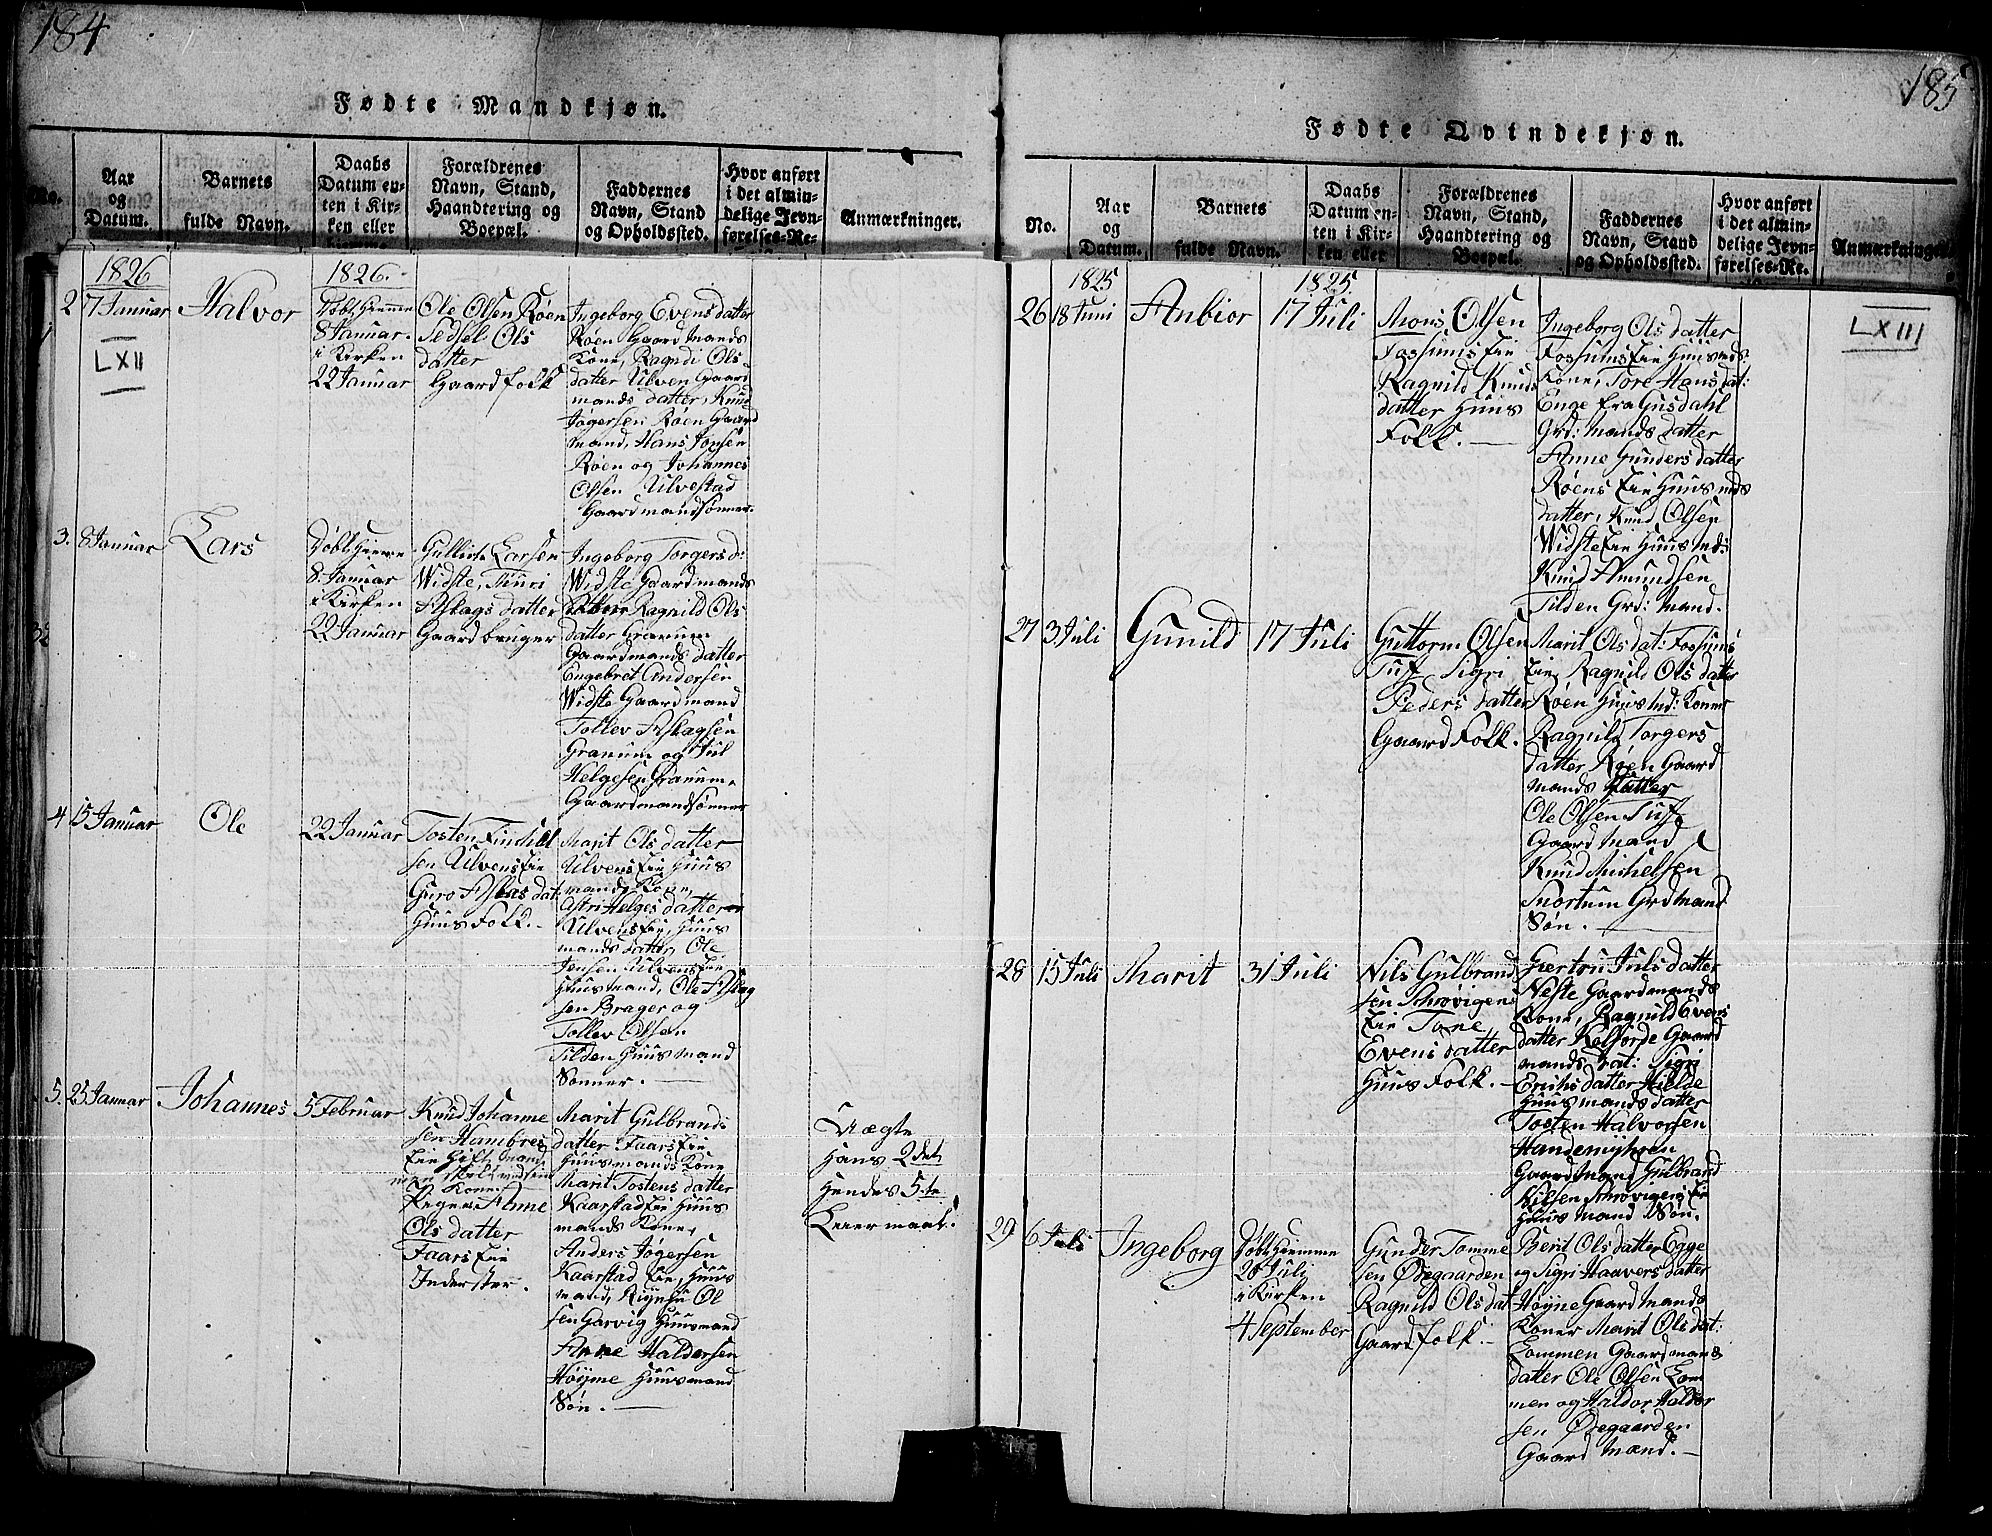 184
Fødte Mandkjøn.
No.
Aar og Datum.
Barnets fulde Navn.
Daabs Datum enten i Kirken eller
Forældrenes Navn, Stand, Haandtering og Boepæl.
Faddernes Navn, Stand og Opholdssted.
Hvor anført i det almindelige Jevnførelses-Re-
Anmærkninger.
1826
1826.
LXII
2
7 Januar
Halvor
Døbt Hiemme
8 Januar.
i Kirken
22 Januar
Ole Olsen Røen
Sedsel Ols
datter
Gaardfolk
Ingeborg Evensdatter
Røen Gaardmands
Kone, Ragndi Ols
datter Ulven Gaard
mands datter, Knud
Jøgersen Røen Gaard
mand, Hans Jonsen
Røen og Johannes
Olsen Ulvestad
Gaardmandsønner.
3.
8 Januar
Lars
Døbt Hiemme
8. Januar
i Kirken
22 Januar
Gullich Larsen
Widste, Turi
Aslags datter
Gaardbruger
Ingeborg Torgersd:
Widste Gaardmands
Ragnild Ols
datter Granum
Gaardmands datter
Engebret Andersen
Widste Gaardmand
Tollev Aslagsen
Granum og Jul
Helgesen Granum
Gaardmandsønner
4
15 Januar
Ole
22 Januar
Tosten Finchel
sen Ulvens Eie
Guro Aslas dat:
Huus Folk.
Marit Ols datter
Ulvens Eie Huus
mands Kone,
Astri Helges datter
Ulvens Eie, Huus
mands datter, Ole
Jensen Ulvens Eie
Huusmand, Ole Aslag
sen Brager og
Tollev Olsen
Tilden Huusmand
Sønner.
5.
25 Januar
Johannes
5 Februar
Knud Johanne
sen Hambres
Eie Gift Mand
Kone
Pigen Anne
Ols datter
Faars Eie
Inderster.
Marit Gulbrands
datter Faars Eie
Huusmands Kone
Marit Tostens datter
Kaarstad Eie Huus
mands Kone,
Anders Jøgersen
Kaarstad Eie, Huus
mand, Ol
sen Garvig Huusmand
Arne Haldorsen
Høyme Huusmand
Søn.
Uægte
Hans 2det
Hendes 5.te
Leiermaal.
185
Fødte Qvindekjøn.
No.
Aar og Datum.
Barnets fulde Navn.
Daabs Datum enten i Kirken eller
Forældrenes Navn, Stand, Haandtering og Boepæl.
Faddernes Navn, Stand og Opholdssted.
Hvor anført i det almindelige Jevnførelses-Re.
Anmærkninger
1825
1825
LXIII
26
18 Juni
Anbior
17 Juli
Mons Olsen
Fossums Eie
Ragnild Knuds
datter Huus
Folk.
Ingeborg Ols datter
Fossums Eie Huusmds
Kone, Tore Hans dat:
Enge fra Gusdahl
Grd: Mands datter
Anne Gunders datter
Røens Eie Huusmds
datter, Knud Olsen
Widste Eie Huusmd:
Knud Amundsen
Tilden Grd: Mand.
27
3 Juli
Gunild
17 Juli
Guttorm Olsen
Tuf Sigri
Peders datter
Gaard Folk.
Marit Ols dat: Fossums
Eie, Ragnild Ols datter
Røen Huusmd: Koner
Ragnild Torgers
datter Røen Gaard
mands datter
Ole Olsen Tufe
Gaardmand
Knud Michelsen
Snortum Grdmand
Søn.
28
15 Juli
Marit
31 Juli
Nils Gulbrand
sen Schrøvigens
Eie Tone
Evens datter
Huus Folk.
Giertru Juls datter
Neste Gaardmands
Kone, Ragnild Evens
datter Kolforde Gaard
mands dat: Sigri
Erichs datter Hilde
Huusmands datter
Tosten Halvorsen
Handemyhren
Gaardmand Gulbrand
Nilsen Schrøvigens Eie
Huusmand Søn.
29
6 Juli
Ingeborg
Døbt Hiemme
20 Juli
i Kirken
4 September
Gunder Tomme
sen Ødegaarden
Ragnild Ols dat
Gaardfolk.
Berit Ols datter Egge
og Sigri Haavers datter
Høyne Gaardmands
Koner Marit Ols dat:
Lommen Gaardmands
datter Ole Olsen Lom
men og Haldor Haldor
sen Ødegaarden
Gaardmænd.